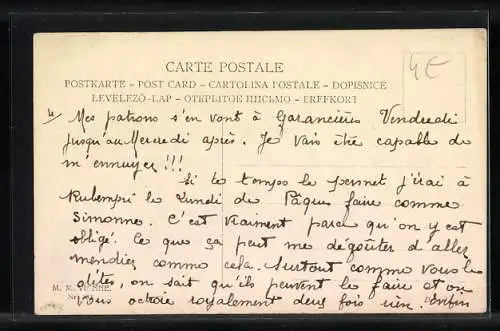 CARTE POSTALE
4€
POSTKARTE – POST CARD – CARTOLINA POSTALE – DOPISNICE
LEVELEZÖ-LAP – ОТКРЫТОЕ ПИСЬМО – BREFKORT
4/ Mes patrons s'en vont à Garancières Vendredi
jusqu'au Mercredi après. Je vais être capable de
m'ennuyer !!!
Si le temps le permet j'irai à
Rubempré le Lundi de Pâques faire comme
Simonne. C'est vraiment parce qu'on y est
obligé. Ce que ça peut me dégoûter d'aller
mendier comme cela. Surtout comme vous le
dites, on sait qu'ils peuvent le faire et on
vous octroie royalement deux fois rien. Enfin
M. M. VIENNE.